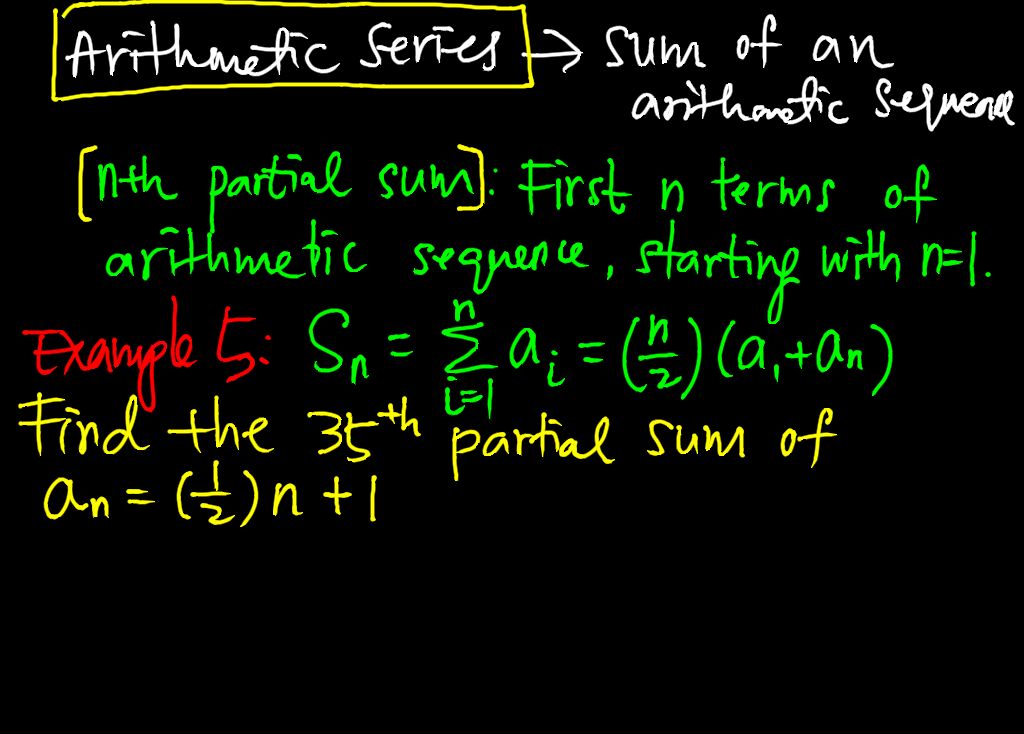 Arithmetic Series → Sum of an
arithmetic sequence
[nth partial sum]: First n terms of
arithmetic sequence, starting with n=1.
Example 5: Sₙ = ∑ⁿᵢ₌₁ aᵢ = (n/2)(a₁+aₙ)
Find the 35ᵗʰ partial sum of
aₙ = (1/2)n + 1